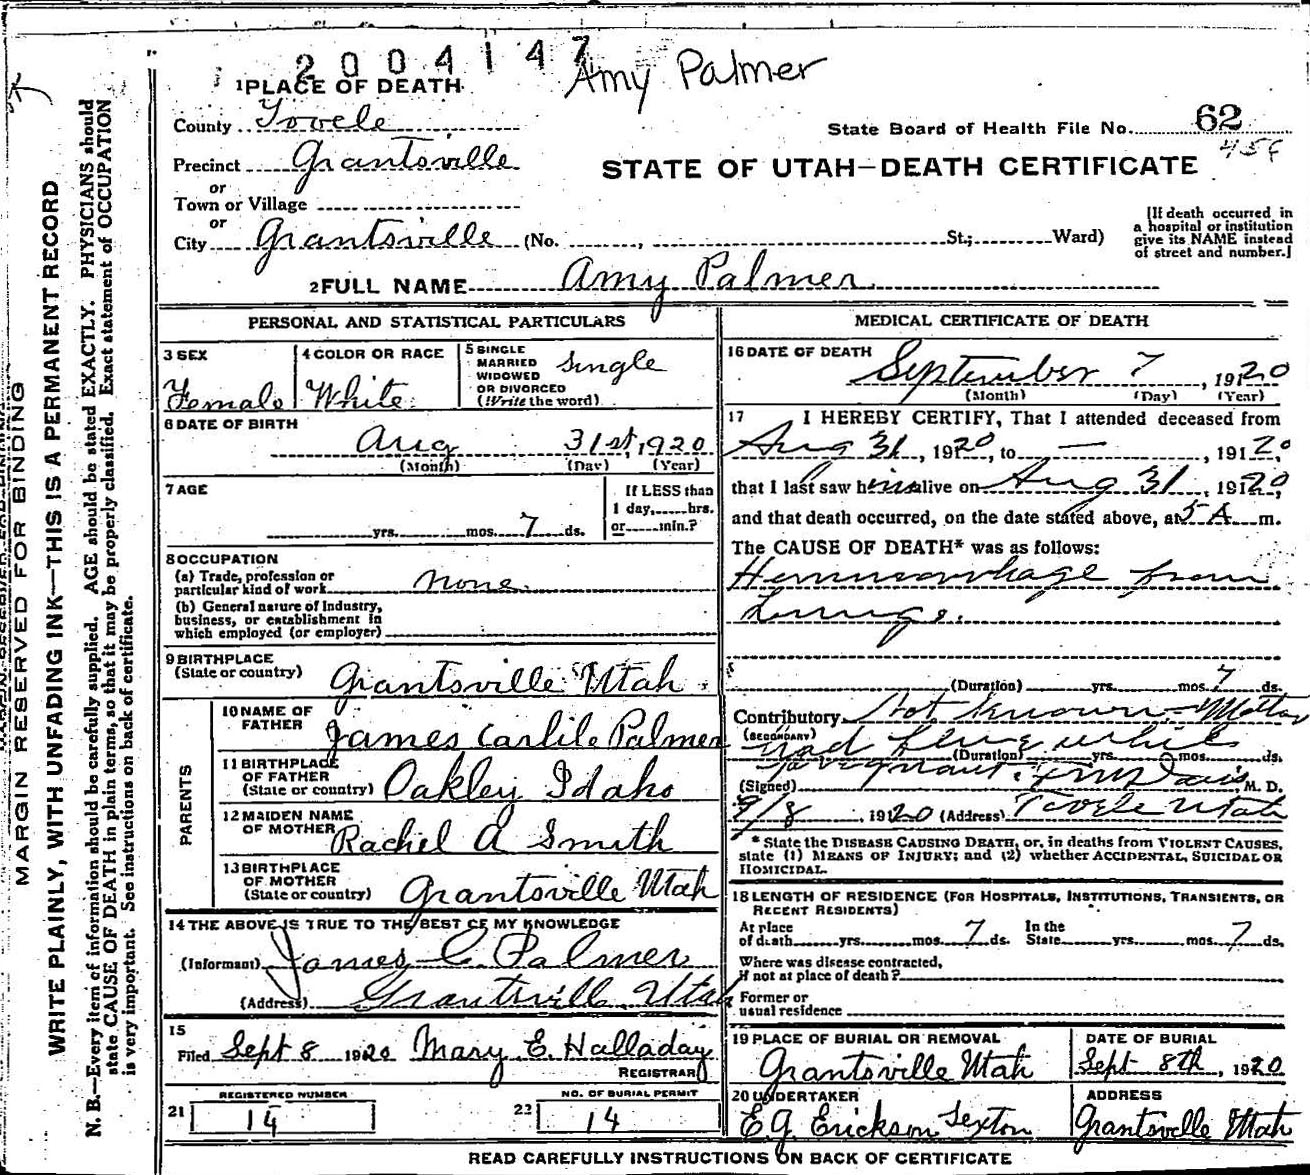 2004147
Amy Palmer
1 PLACE OF DEATH
County Tooele
State Board of Health File No. 62
458
Precinct Grantsville
STATE OF UTAH—DEATH CERTIFICATE
or
Town or Village
or
City Grantsville (No. , St.; Ward)
[If death occurred in
a hospital or institution
give its NAME instead
of street and number.]
2 FULL NAME Amy Palmer
PERSONAL AND STATISTICAL PARTICULARS
3 SEX
Female
4 COLOR OR RACE
White
5 SINGLE
MARRIED
WIDOWED
OR DIVORCED
(Write the word)
Single
6 DATE OF BIRTH
Aug 31st, 1920
(Month) (Day) (Year)
7 AGE
yrs. mos. 7 ds.
If LESS than
1 day, hrs.
or min.?
8 OCCUPATION
(a) Trade, profession or
particular kind of work none.
(b) General nature of Industry,
business, or establishment in
which employed (or employer)
9 BIRTHPLACE
(State or country) Grantsville Utah
PARENTS
10 NAME OF
FATHER James Carlile Palmer
11 BIRTHPLACE
OF FATHER
(State or country) Oakley Idaho
12 MAIDEN NAME
OF MOTHER Rachel A Smith
13 BIRTHPLACE
OF MOTHER
(State or country) Grantsville Utah
14 THE ABOVE IS TRUE TO THE BEST OF MY KNOWLEDGE
(Informant) James C. Palmer
(Address) Grantsville Utah
15
Filed Sept 8 1920 Mary E. Halladay
REGISTRAR
REGISTERED NUMBER
21 14
NO. OF BURIAL PERMIT
22 14
MEDICAL CERTIFICATE OF DEATH
16 DATE OF DEATH
September 7, 191 20
(Month) (Day) (Year)
17 I HEREBY CERTIFY, That I attended deceased from
Aug 31, 1920, to —, 191 20
that I last saw him alive on Aug 31, 191 20,
and that death occurred, on the date stated above, at 5 A m.
The CAUSE OF DEATH* was as follows:
Hemmorrhage from
Lungs.
(Duration) yrs. mos. 7 ds.
Contributory Not known—Mother
(SECONDARY)
had flu while
(Duration) yrs. mos. ds.
pregnant.
(Signed) Davis, M. D.
9/8, 1920 (Address) Tooele Utah
* State the DISEASE CAUSING DEATH, or, in deaths from VIOLENT CAUSES,
state (1) MEANS OF INJURY; and (2) whether ACCIDENTAL, SUICIDAL OR
HOMICIDAL.
18 LENGTH OF RESIDENCE (FOR HOSPITALS, INSTITUTIONS, TRANSIENTS, OR
RECENT RESIDENTS)
At place
of death yrs. mos. 7 ds.
In the
State yrs. mos. 7 ds.
Where was disease contracted,
if not at place of death?
Former or
usual residence
19 PLACE OF BURIAL OR REMOVAL
Grantsville Utah
DATE OF BURIAL
Sept 8th, 1920
20 UNDERTAKER
E. G. Erickson Sexton
ADDRESS
Grantsville Utah
READ CAREFULLY INSTRUCTIONS ON BACK OF CERTIFICATE
MARGIN RESERVED FOR BINDING
WRITE PLAINLY, WITH UNFADING INK—THIS IS A PERMANENT RECORD
N. B.—Every item of information should be carefully supplied. AGE should be stated EXACTLY. PHYSICIANS should
state CAUSE OF DEATH in plain terms, so that it may be properly classified. Exact statement of OCCUPATION
is very important. See instructions on back of certificate.